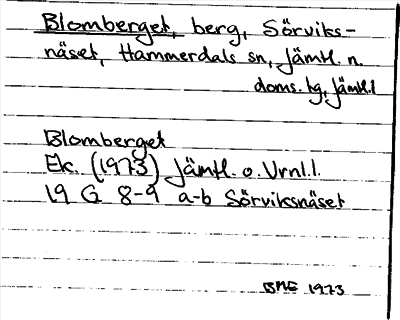 Blomberget, berg, Sörviks-
näset, Hammerdals sn, Jämtl. n.
doms. tg, Jämtl.l
Blomberget
Ek. (1973) Jämtl. o. Vrnl.l.
19 G 8-9 a-b Sörviksnäset
BME 1973